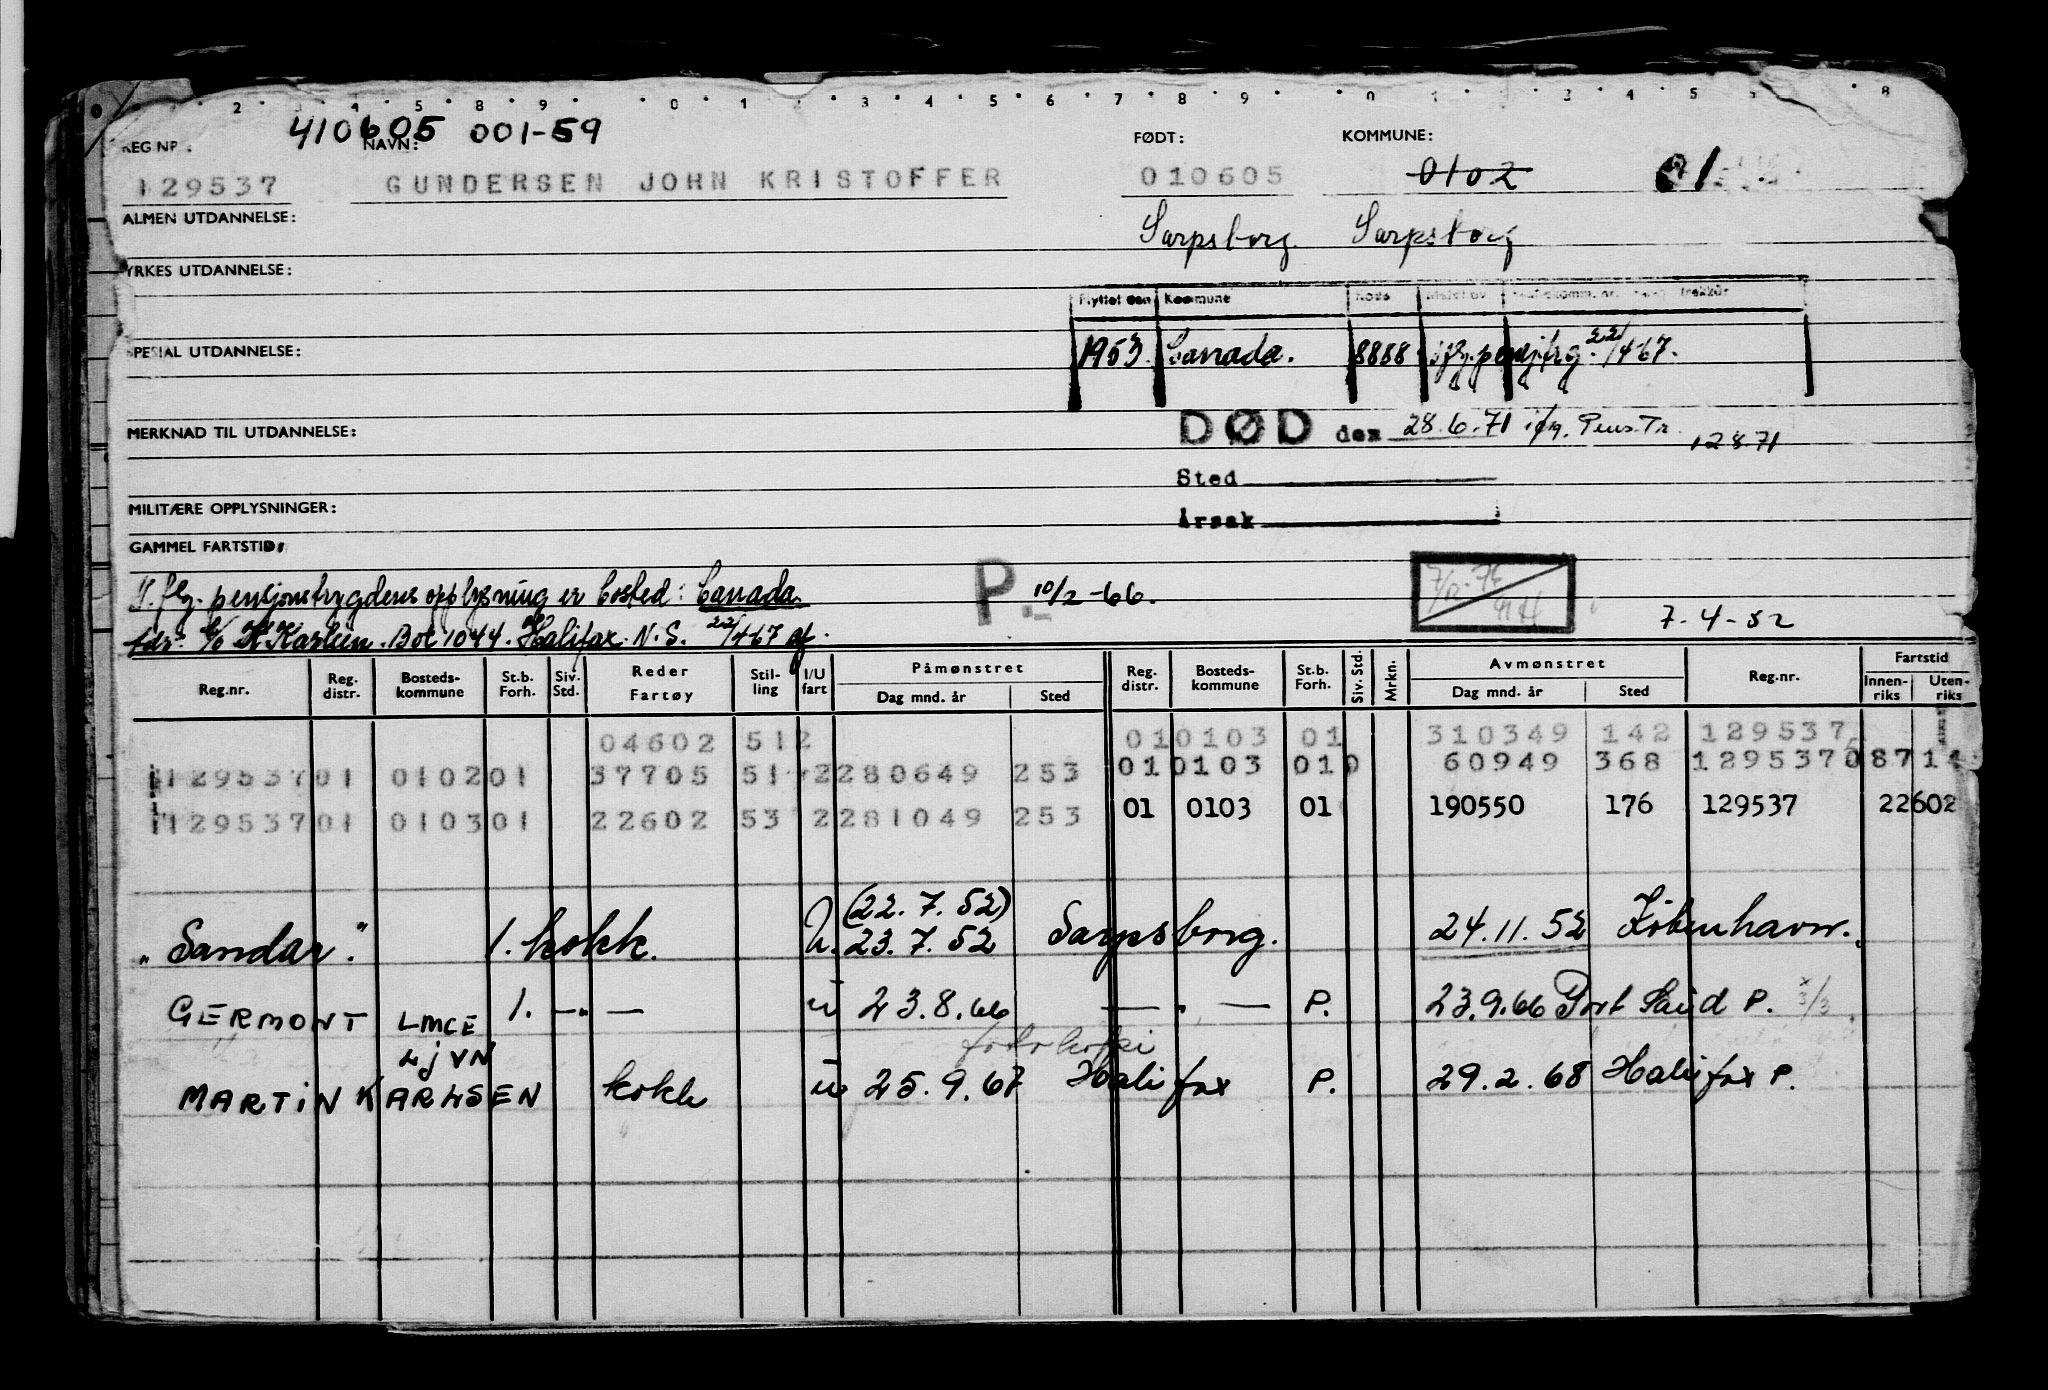 2 3 4 5 8 9 0 1 3 4 5 6 7 8 9 0 1 3 4 5 8
410605 001-59
REG NR.: NAVN: FØDT: KOMMUNE:
129537 GUNDERSEN JOHN KRISTOFFER 010605 0102 01
ALMEN UTDANNELSE: Sarpsborg. Sarpsborg
YRKES UTDANNELSE:
Flyttet den Kommune Kode Meldt av trekkår
SPESIAL UTDANNELSE: 1953. Canada. 8888 22/4 67.
MERKNAD TIL UTDANNELSE: DØD den 28.6.71 ifg. Pens.Tr. 12871
Sted
MILITÆRE OPPLYSNINGER: Årsak
GAMMEL FARTSTID:
I. flg. pensjonstrygdens opplysning er bosted: Canada. P.- 10/2-66.
adr: c/o K Karlsen. Box 1044. Halifax. N.S. 22/4 67 7-4-52
Reg.nr. Reg. distr. Bosteds- kommune St.b. Forh. Siv. Std. Reder Fartøy Stil- ling I/U fart Påmønstret Dag mnd. år Sted Reg. distr. Bosteds- kommune St.b. Forh. Siv. Std. Mrkn. Avmønstret Dag mnd. år Sted Reg.nr. Fartstid Innen- riks Uten- riks
04602 512 010103 01 310349 142 129537
129537 01 0102 01 37705 51 2 280649 253 01 0103 01 0 60949 368 129537 0 87 14
129537 01 0103 01 22602 53 2 281049 253 01 0103 01 190550 176 129537 22602
(22.7.52)
"Sandar". 1. kokk. U. 23.7.52 Sarpsborg. 24.11.52 København.
GERMONT LMCE 1. —„— u 23.8.66 —„— P. 23.9.66 Port Said P. x 3/3
LJVN
MARTIN KARLSEN kokk u 25.9.67 Halifax P. 29.2.68 Halifax P.